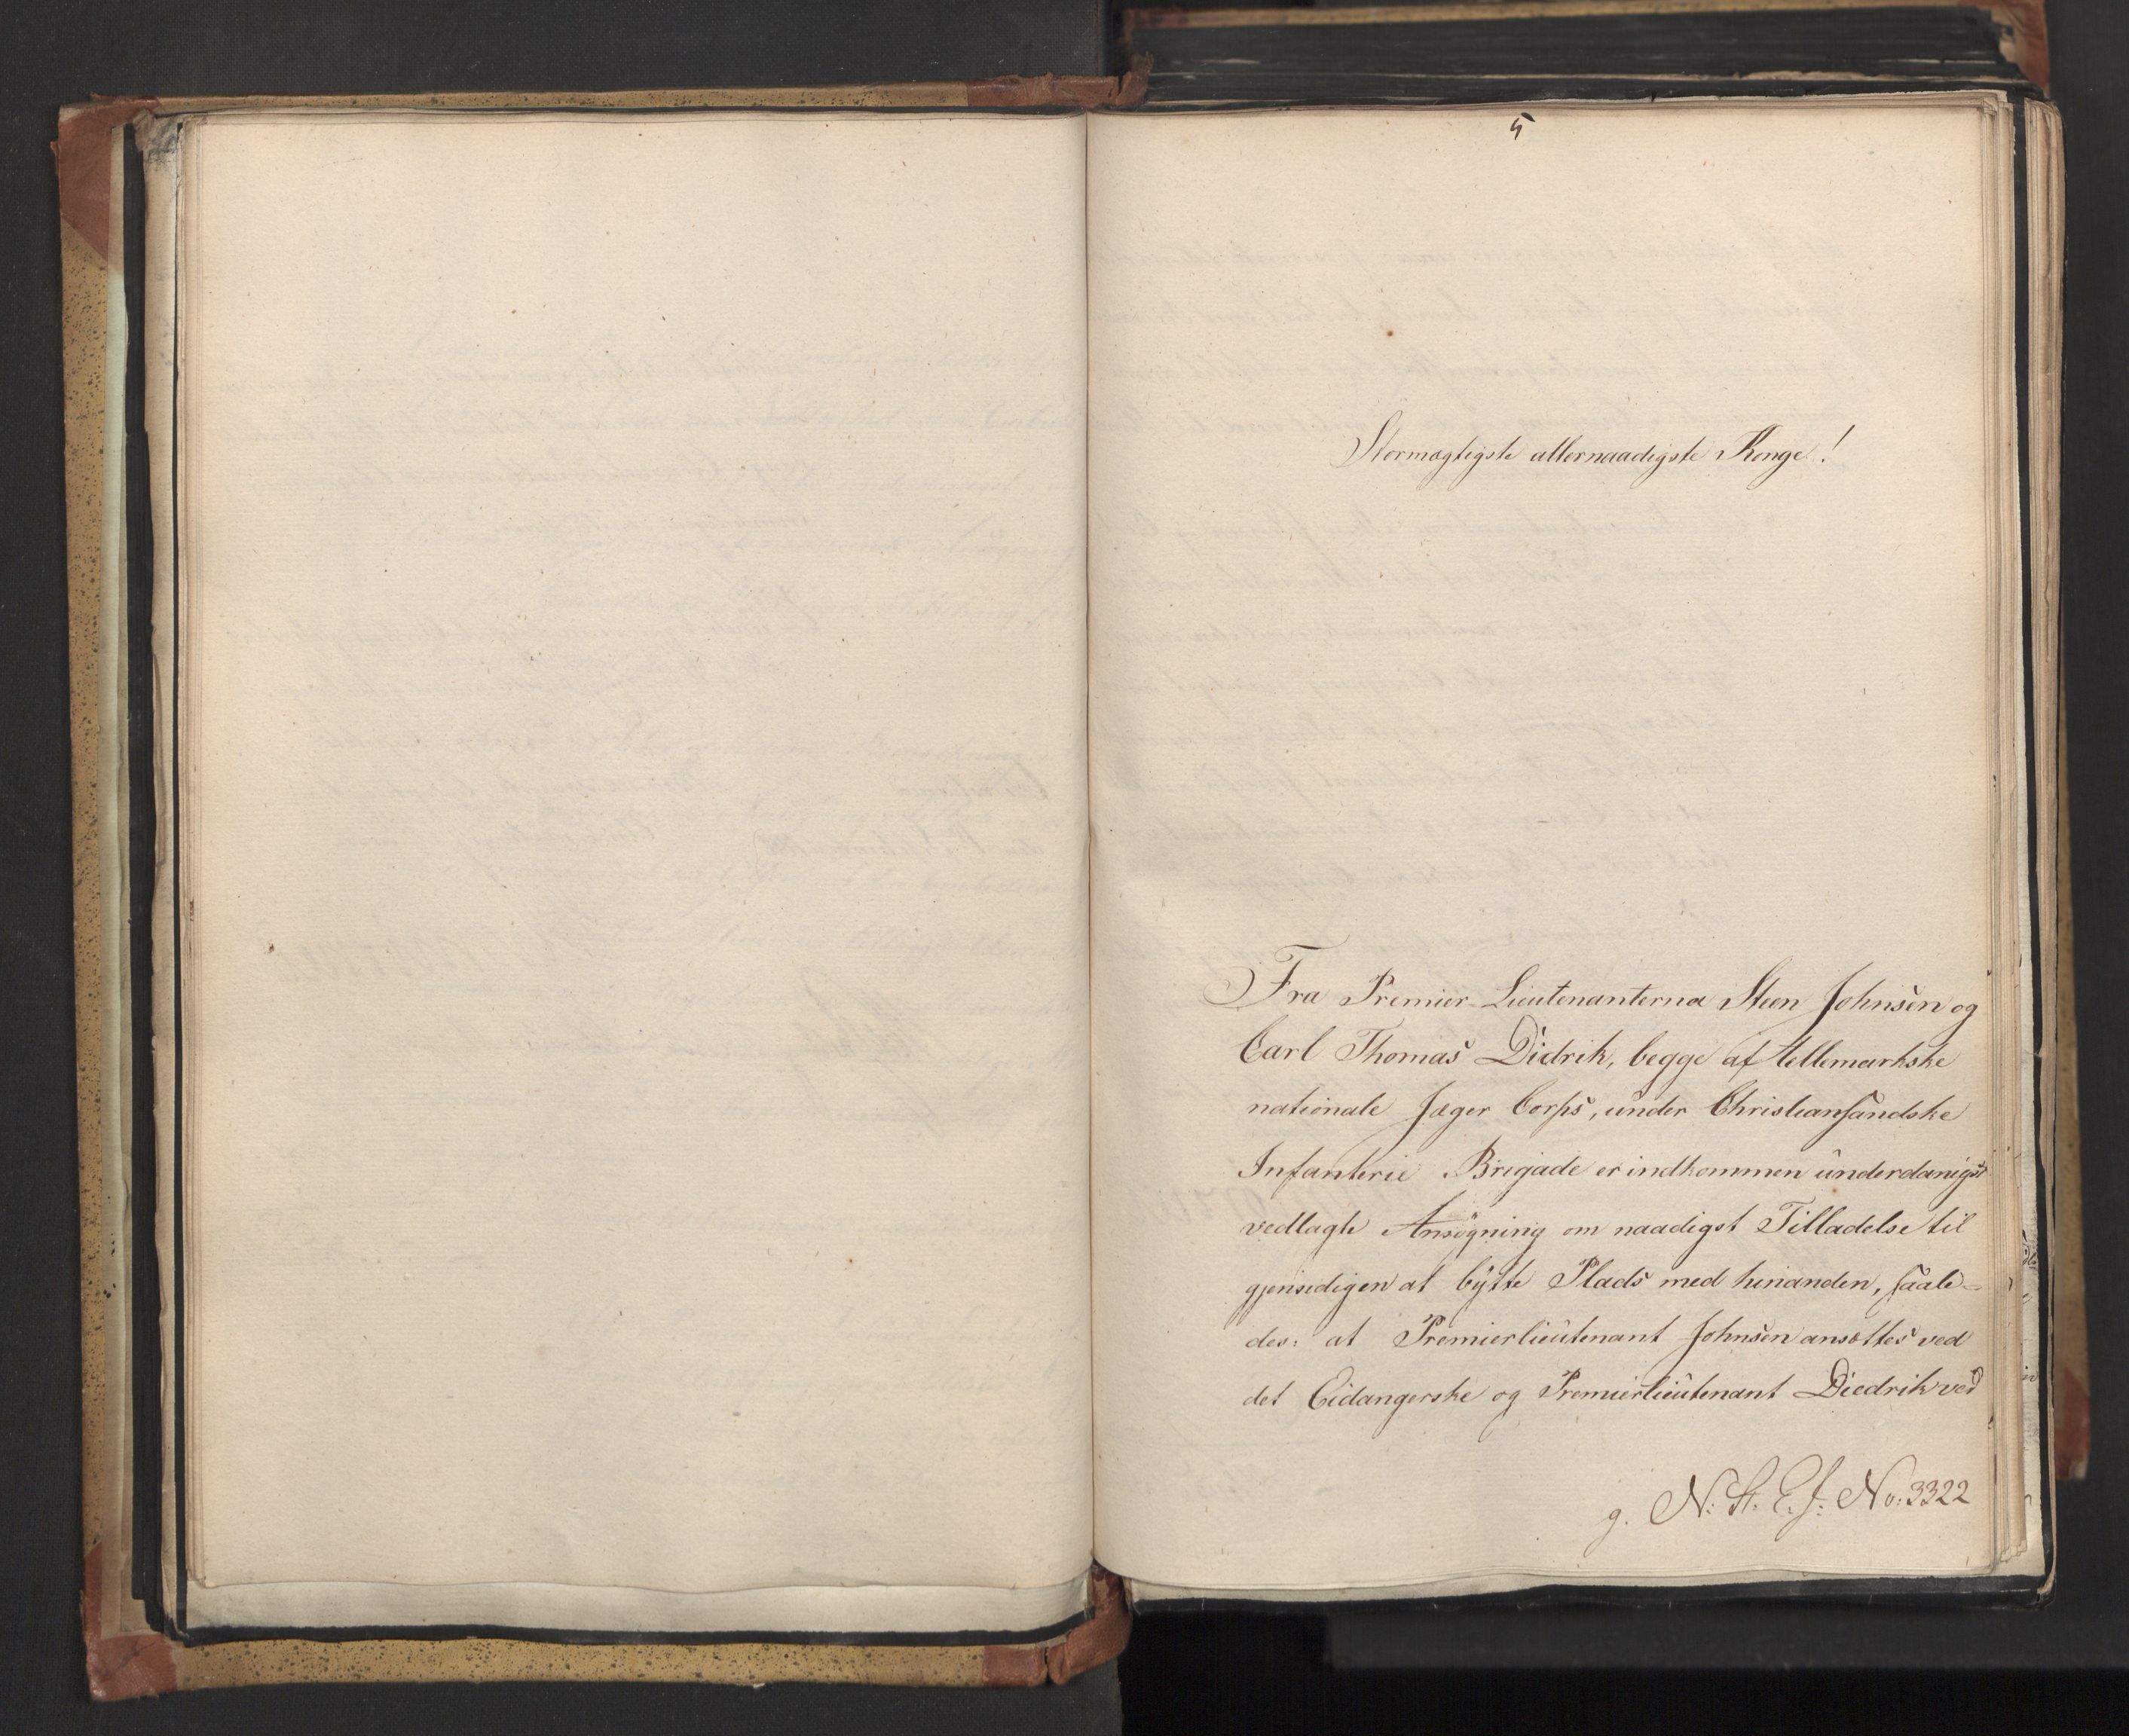 5
Stormægtigste allernaadigste Konge!
Fra Premier-Lieutenanterna Steen Johnsen og
Carl Thomas Didrik, begge af tellemarkske
nationale Jæger Corps, under Christiansandske
Infanterie Brigade er indkommen underdanigst
vedlagte Ansøgning om naadigst Tilladelse til
gjensidigen at bytte Plads med hinanden, saale-
des: at Premierlieutenant Johnsen ansættes ved
det Eidangerske og Premierlieutenant Diedrik ved
g. N: St. E. J: No: 3322